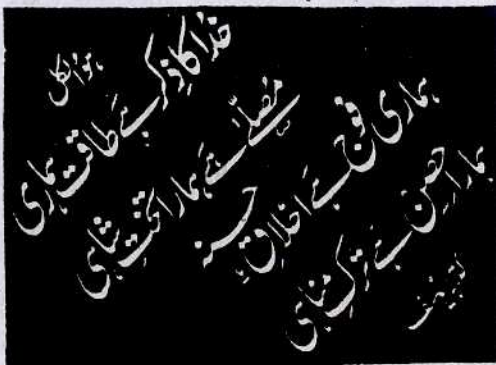 ہوالکل
خدا کا ذکر ہے طاقت ہماری
مصلےٰ ہے ہمارا تخت شاہی
ہماری فوج ہے اخلاقِ حسنہ
ہمارا حصن ہے ترکِ مناہی